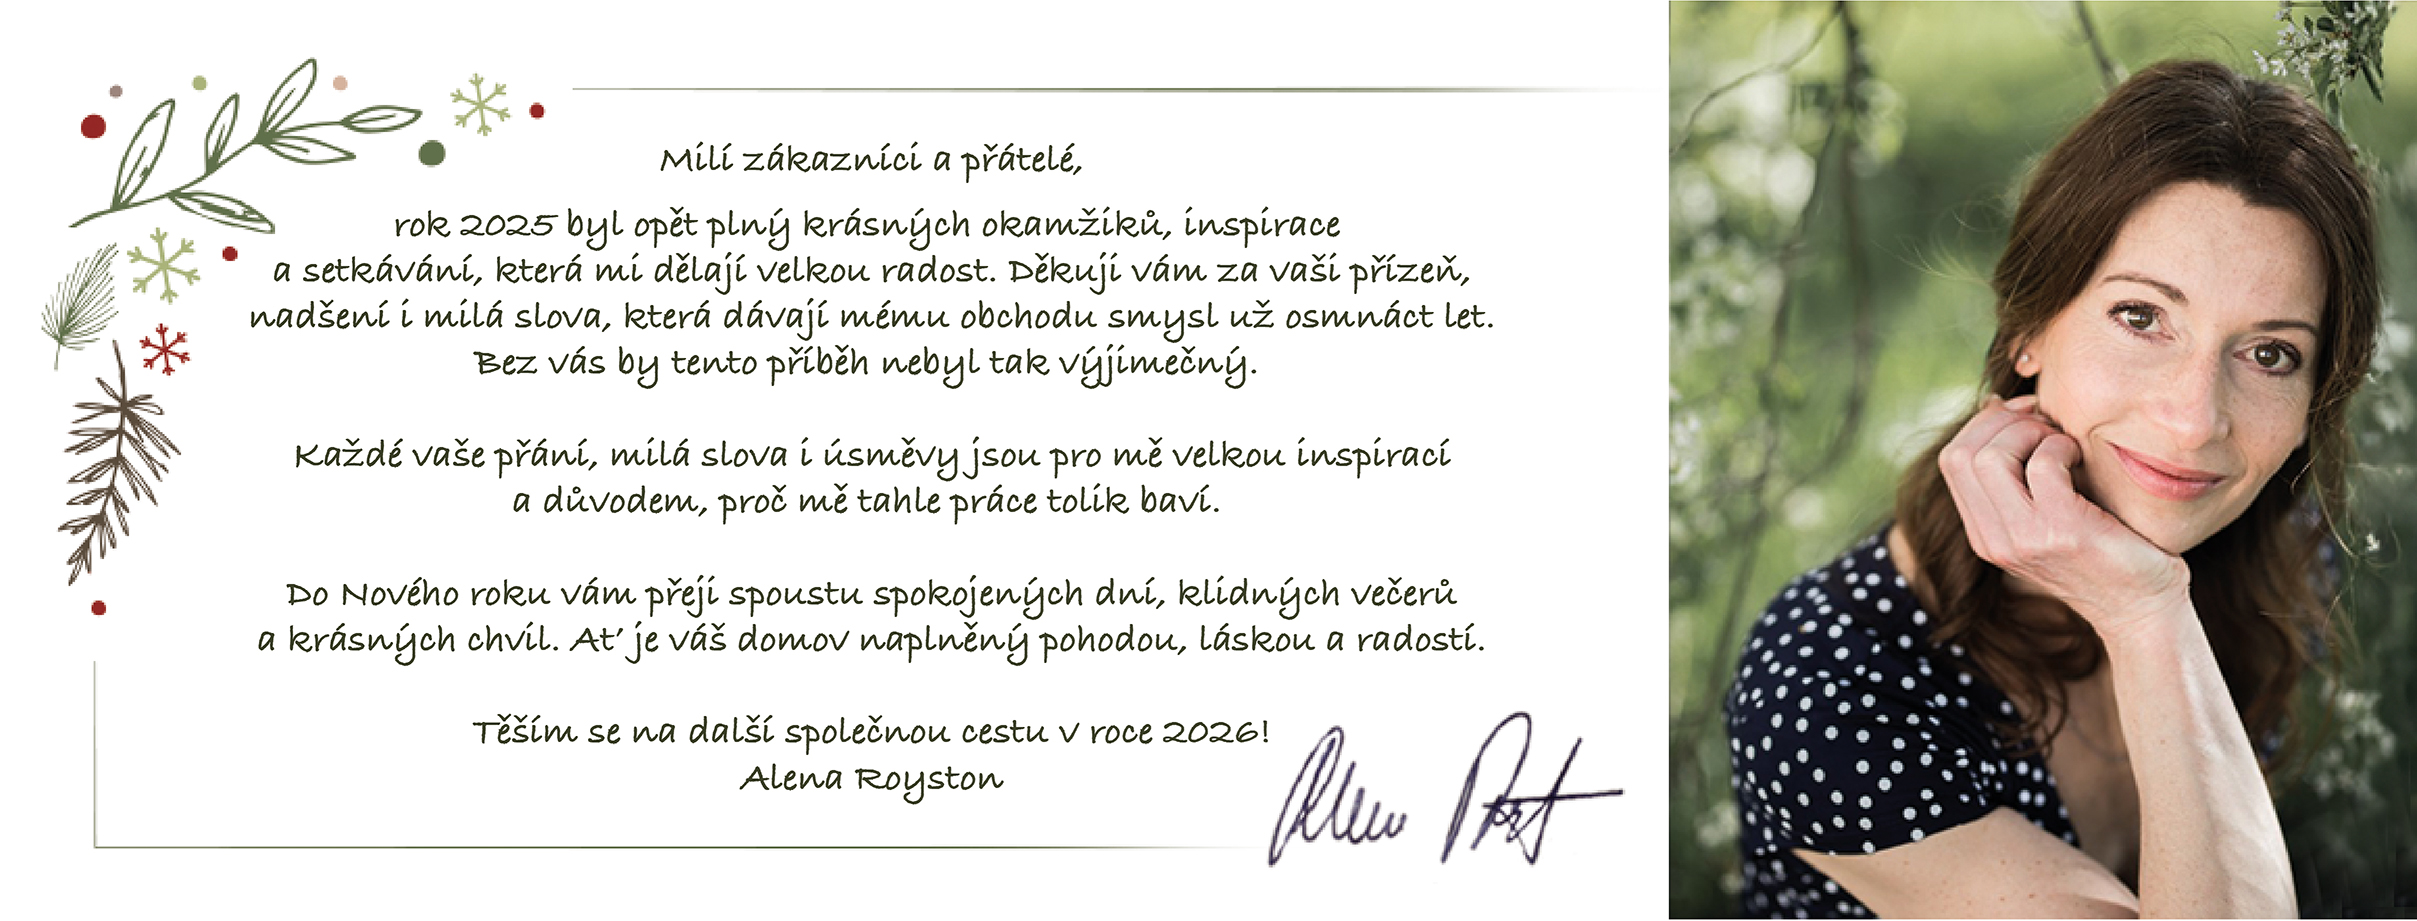 Milí zákazníci a přátelé,
rok 2025 byl opět plný krásných okamžiků, inspirace
a setkávání, která mi dělají velkou radost. Děkuji vám za vaši přízeň,
nadšení i milá slova, která dávají mému obchodu smysl už osmnáct let.
Bez vás by tento příběh nebyl tak výjimečný.
Každé vaše přání, milá slova i úsměvy jsou pro mě velkou inspirací
a důvodem, proč mě tahle práce tolik baví.
Do Nového roku vám přeji spoustu spokojených dní, klidných večerů
a krásných chvil. Ať je váš domov naplněný pohodou, láskou a radostí.
Těším se na další společnou cestu v roce 2026!
Alena Royston